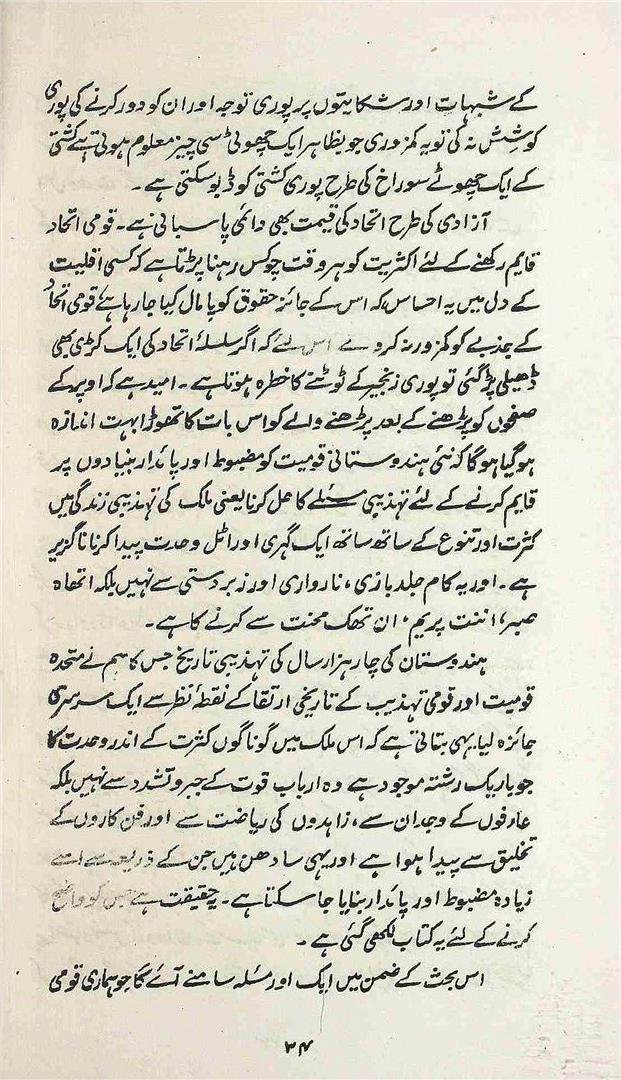 کے شبہات اور شکایتوں پر پوری توجہ اور ان کو دور کرنے کی پوری
کوشش نہ کی تو یہ کمزوری جو بظاہر ایک چھوٹی سی چیز معلوم ہوتی ہے کشتی
کے ایک چھوٹے سوراخ کی طرح پوری کشتی کو ڈبو سکتی ہے۔
آزادی کی طرح اتحاد کی قیمت بھی دائمی پاسبانی ہے۔ قومی اتحاد
قایم رکھنے کے لئے اکثریت کو ہر وقت چوکس رہنا پڑتا ہے کہ کسی اقلیت
کے دل میں یہ احساس، کہ اس کے جائز حقوق کو پامال کیا جا رہا ہے، قومی اتحاد
کے جذبے کو کمزور نہ کر دے اس لئے کہ اگر سلسلۂ اتحاد کی ایک کڑی بھی
ڈھیلی پڑ گئی تو پوری زنجیر کے ٹوٹنے کا خطرہ ہوتا ہے۔ امید ہے کہ اوپر کے
صفحوں کو پڑھنے کے بعد پڑھنے والے کو اس بات کا تھوڑا بہت اندازہ
ہو گیا ہوگا کہ نئی ہندوستانی قومیت کو مضبوط اور پائدار بنیادوں پر
قایم کرنے کے لئے تہذیبی مسئلے کا حل کرنا یعنی ملک کی تہذیبی زندگی میں
کثرت اور تنوع کے ساتھ ساتھ ایک گہری اور اٹل وحدت پیدا کرنا ناگزیر
ہے۔ اور یہ کام جلد بازی، نارواری اور زبردستی سے نہیں بلکہ اتھاہ
صبر، اننت پریم، ان تھک محنت سے کرنے کا ہے۔
ہندوستان کی چار ہزار سال کی تہذیبی تاریخ جس کا ہم نے متحدہ
قومیت اور قومی تہذیب کے تاریخی ارتقا کے نقطۂ نظر سے ایک سرسری
جائزہ لیا یہی بتاتی ہے کہ اس ملک میں گوناگوں کثرت کے اندر وحدت کا
جو باریک رشتہ موجود ہے وہ ارباب قوت کے جبر و تشدد سے نہیں بلکہ
عارفوں کے وجدان سے، زاہدوں کی ریاضت سے اور فن کاروں کے
تخلیق سے پیدا ہوا ہے اور یہی سادھن ہیں جن کے ذریعہ سے اسے
زیادہ مضبوط اور پائدار بنایا جا سکتا ہے۔ یہ حقیقت ہے جس کو واضح
کرنے کے لئے یہ کتاب لکھی گئی ہے۔
اس بحث کے ضمن میں ایک اور مسئلہ سامنے آئے گا جو ہماری قومی
۳۴